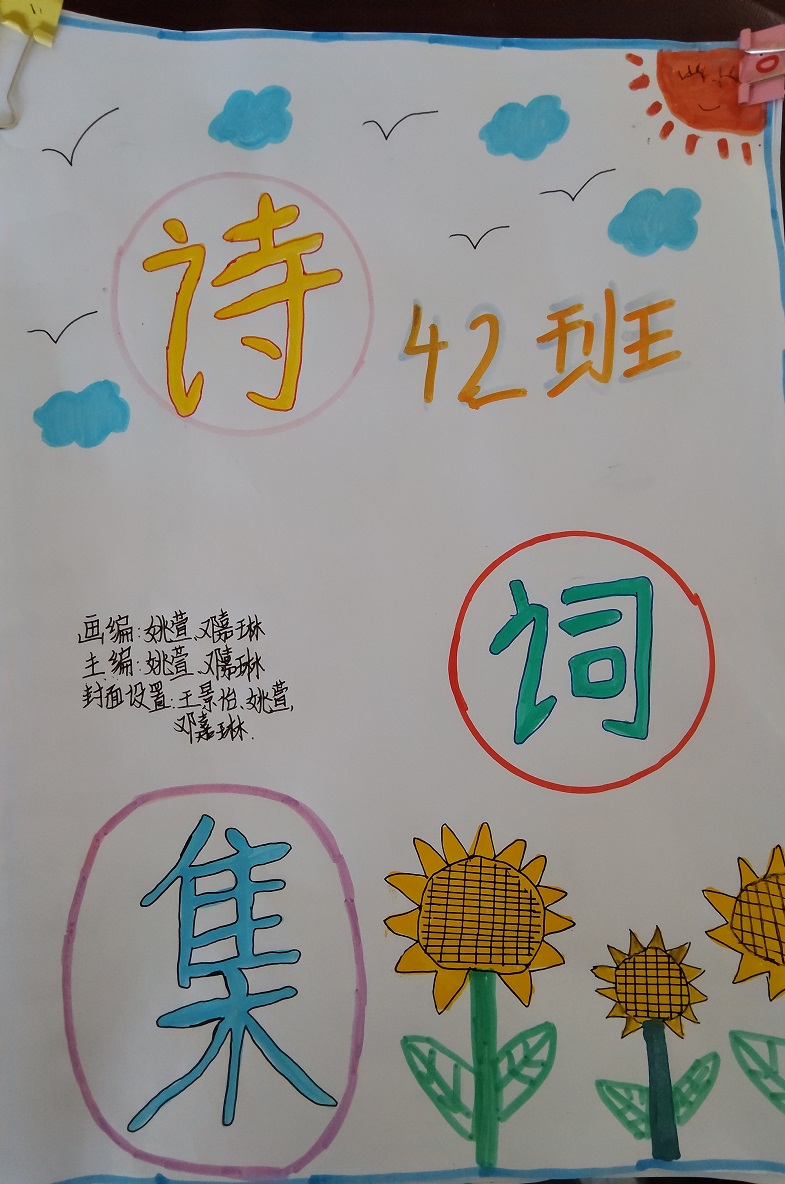 诗
42班
画编:姚萱、邓嘉琳
主编:姚萱、邓嘉琳
封面设置:王景怡、姚萱,
邓嘉琳.
词
集